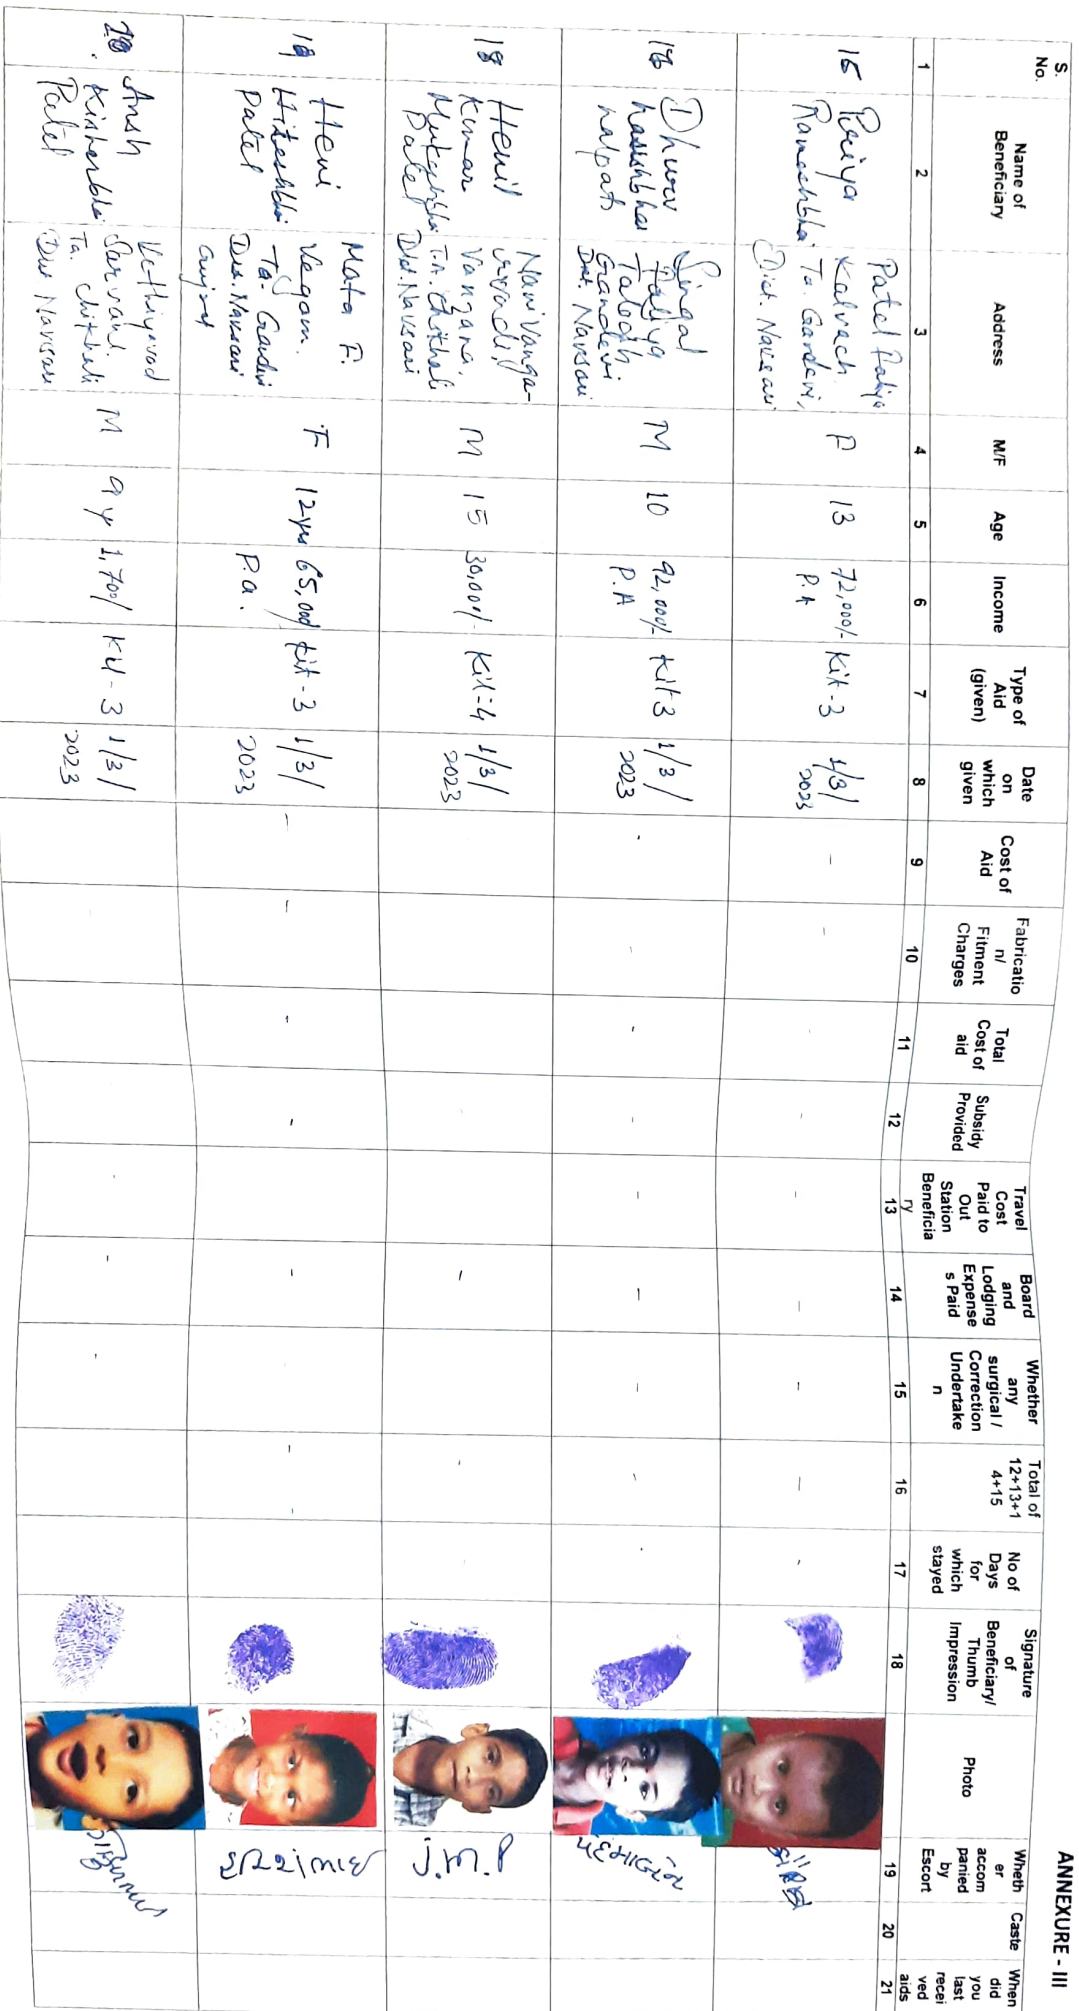 ANNEXURE - III
S.
No.
Name of
Beneficiary
Address
M/F
Age
Income
Type of
Aid
(given)
Date
on
which
given
Cost of
Aid
Fabricatio
n/
Fitment
Charges
Total
Cost of
aid
Subsidy
Provided
Travel
Cost
Paid to
Out
Station
Beneficia
ry
Board
and
Lodging
Expense
s Paid
Whether
any
surgical /
Correction
Undertake
n
Total of
12+13+1
4+15
No of
Days
for
which
stayed
Signature
of
Beneficiary/
Thumb
Impression
Photo
Wheth
er
accom
panied
by
Escort
Caste
When
did
you
last
recei
ved
aids
1 2 3 4 5 6 7 8 9 10 11 12 13 14 15 16 17 18 19 20 21
Priya
Rameshbhai
Patel Faliya
Kalvach
Ta. Gandevi,
Dist. Navsari
F
13
72,000/-
P.A
Kit-3
1/3/
2023
Dhruv
Singal
Faliya
Talodh
Gandevi
Dist. Navsari
M
10
92,000/-
P.A
Kit-3
1/3/
2023
18
Henil
Kumar
Mukeshbhai
Patel
Nani Vanga-
Vanzana,
Ta. Chikhali
Dist. Navsari
M
15
30,000/-
Kit-4
1/3/
2023
J.M.P
19
Heni
Hiteshbhai
Patel
Mota F.
Vegam.
Ta- Gandevi
Dis. Navsari
Gujrat
F
12 yrs
65,000/
P.a.
Kit-3
1/3/
2023
20
Ansh
Kishorbhai
Patel
Ta. Chikhali
Dis. Navsari
M
9 y
1,700/
Kit-3
1/3/
2023